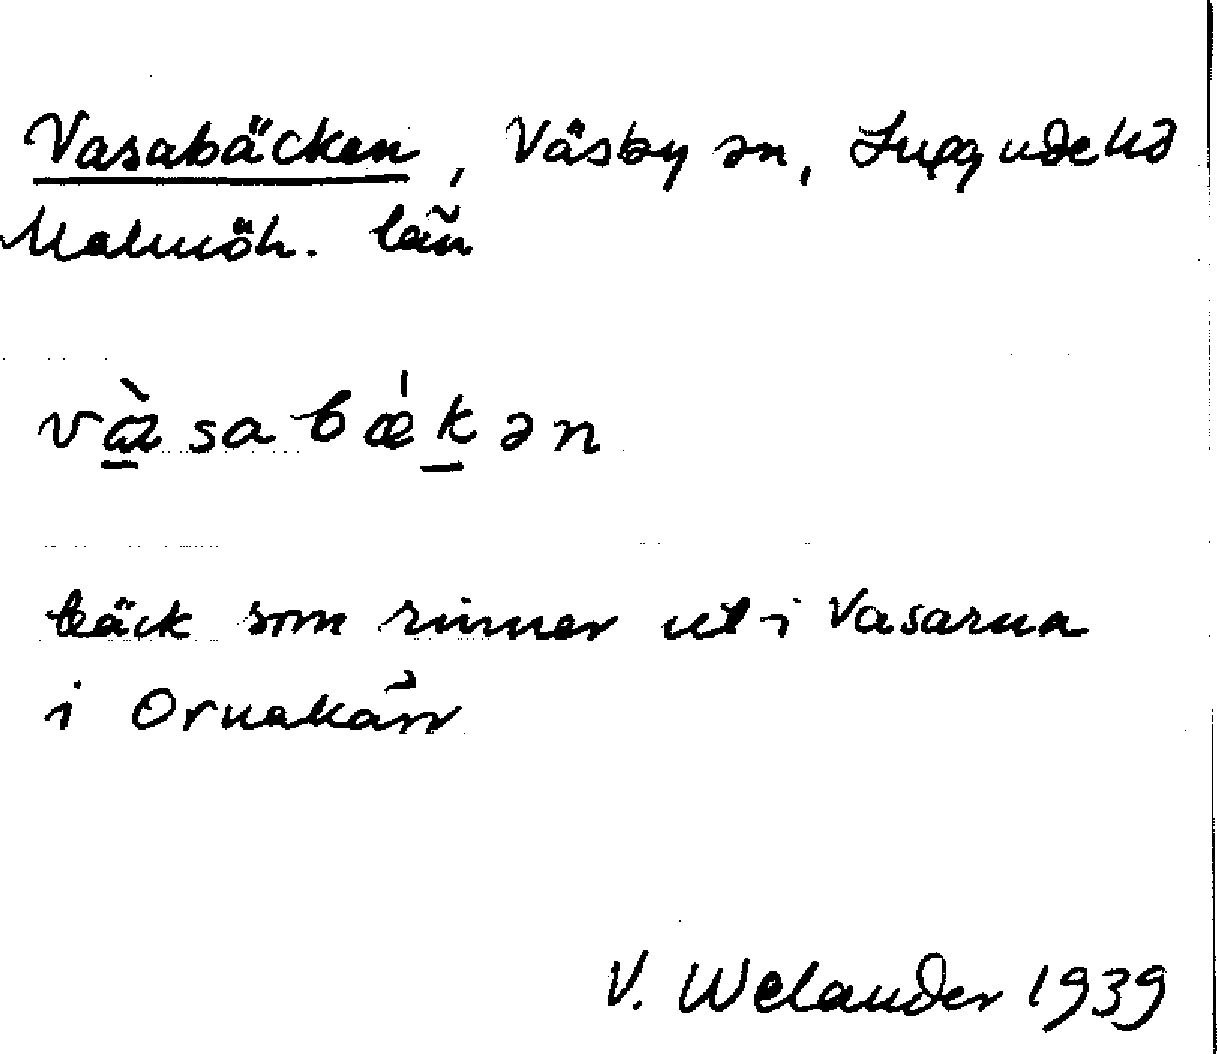 Vasabäcken, Väsby sn, Luggude hd
Malmöh. län
vàsabǽkən
bäck som rinner ut i Vasarna
i Ornakärr
V. Welander 1939